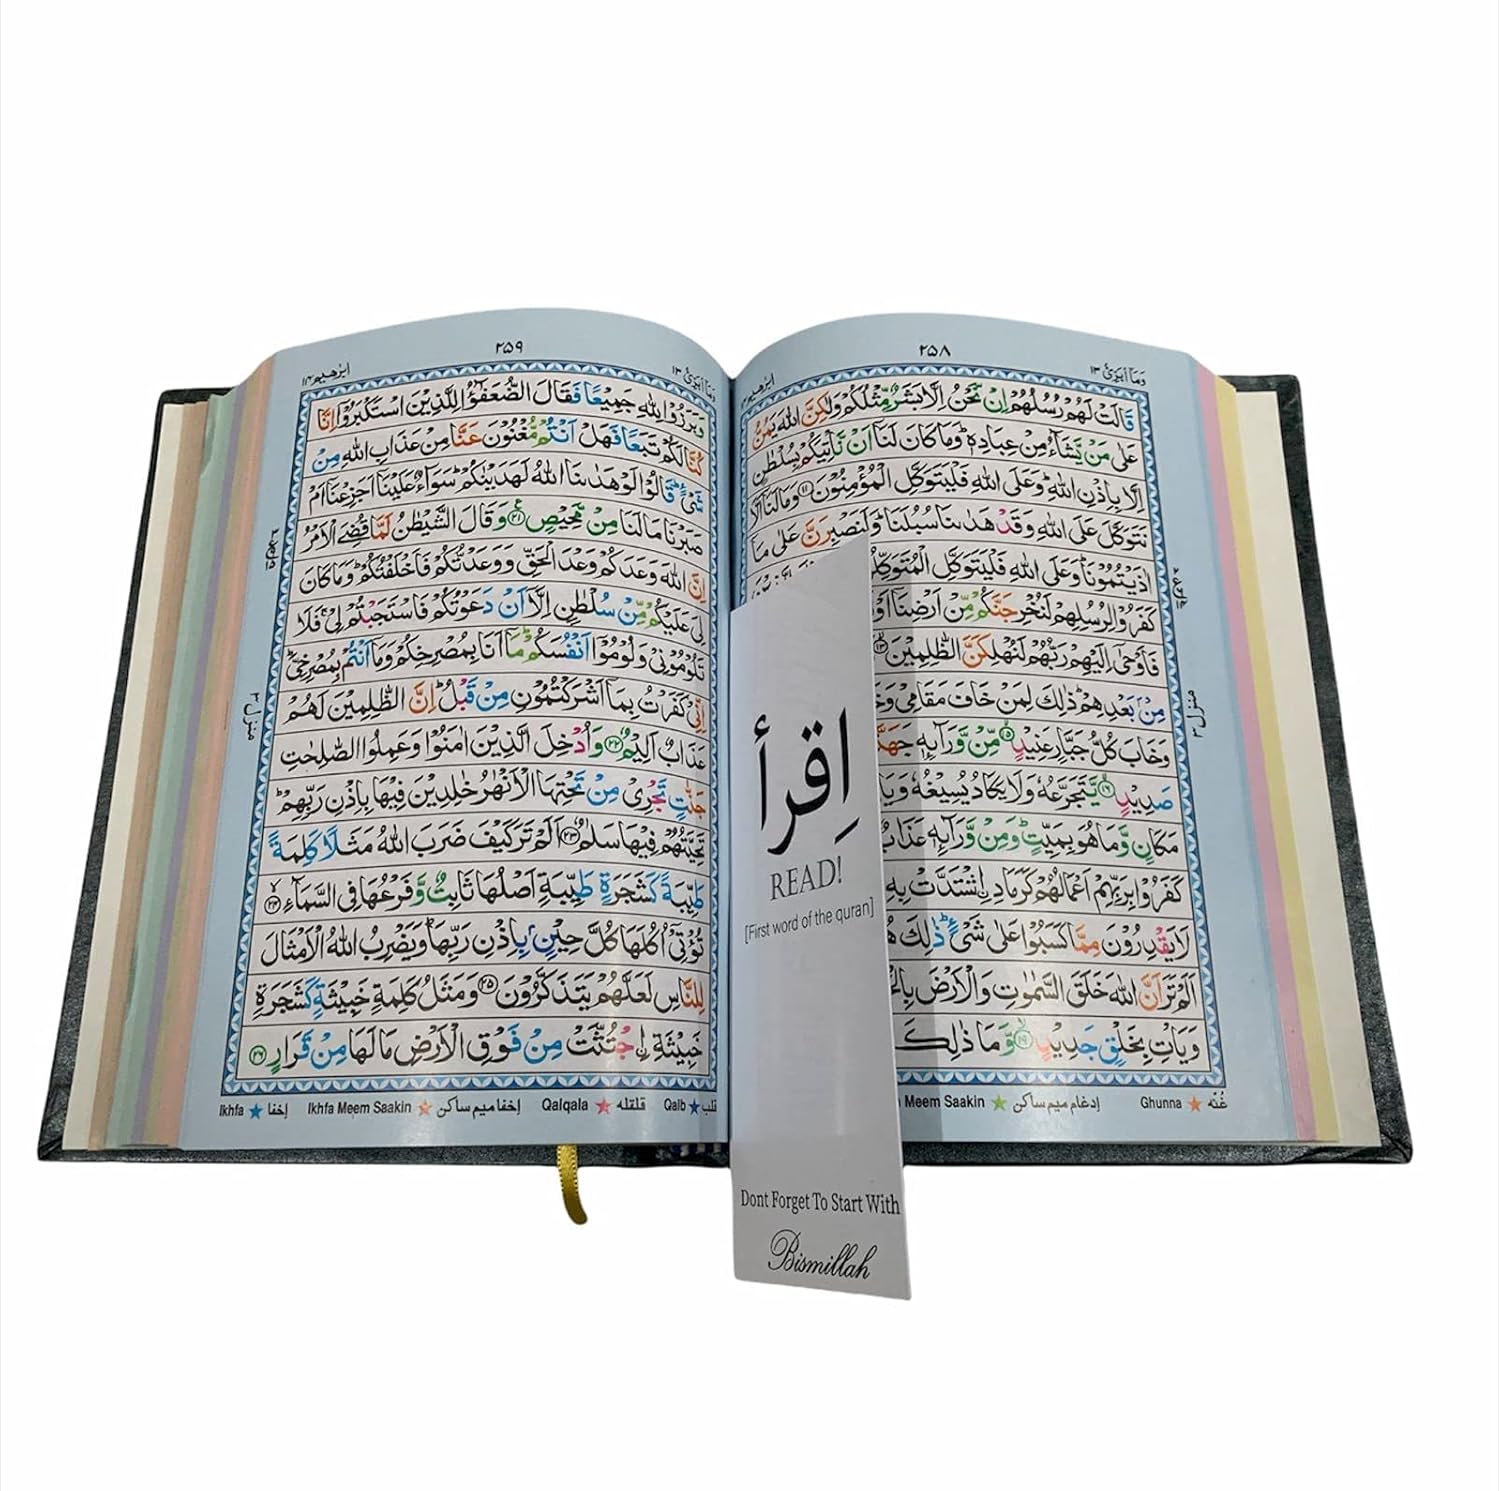 ۲۵۸
وَمَآ اُبَرِّئُ ۱۳
اِبْرٰهِيْم
قَالَتْ لَهُمْ رُسُلُهُمْ اِنْ نَّحْنُ اِلَّا بَشَرٌ مِّثْلُكُمْ وَلٰكِنَّ اللّٰهَ يَمُنُّ
عَلٰى مَنْ يَّشَآءُ مِنْ عِبَادِهٖ ؕ وَمَا كَانَ لَنَاۤ اَنْ نَّاْتِيَكُمْ بِسُلْطٰنٍ
اِلَّا بِاِذْنِ اللّٰهِ ؕ وَعَلَى اللّٰهِ فَلْيَتَوَكَّلِ الْمُؤْمِنُوْنَ ۱۱ وَمَا لَنَاۤ اَلَّا
نَتَوَكَّلَ عَلَى اللّٰهِ وَقَدْ هَدٰىنَا سُبُلَنَا ؕ وَلَنَصْبِرَنَّ عَلٰى مَاۤ
اٰذَيْتُمُوْنَا ؕ وَعَلَى اللّٰهِ فَلْيَتَوَكَّلِ
كَفَرُوْا لِرُسُلِهِمْ لَنُخْرِجَنَّكُمْ مِّنْ اَرْضِنَاۤ
فَاَوْحٰۤى اِلَيْهِمْ رَبُّهُمْ لَنُهْلِكَنَّ الظّٰلِمِيْنَ ۱۳
مِنْۢ بَعْدِهِمْ ؕ ذٰلِكَ لِمَنْ خَافَ مَقَامِيْ
وَخَابَ كُلُّ جَبَّارٍ عَنِيْدٍ ۱۵ مِّنْ وَّرَآئِهٖ
صَدِيْدٍ ۱۶ يَّتَجَرَّعُهٗ وَلَا يَكَادُ يُسِيْغُهٗ
مَكَانٍ وَّمَا هُوَ بِمَيِّتٍ ؕ وَمِنْ وَّرَآئِهٖ عَذَابٌ
كَفَرُوْا بِرَبِّهِمْ اَعْمَالُهُمْ كَرَمَادِ ۨاشْتَدَّتْ بِهِ
لَا يَقْدِرُوْنَ مِمَّا كَسَبُوْا عَلٰى شَيْءٍ ؕ ذٰلِكَ
اَلَمْ تَرَ اَنَّ اللّٰهَ خَلَقَ السَّمٰوٰتِ وَالْاَرْضَ
وَيَاْتِ بِخَلْقٍ جَدِيْدٍ ۱۹ وَّمَا ذٰلِكَ
منزل ۳
غُنّه Ghunna ادغام میم ساکن Meem Saakin
۲۵۹
وَمَآ اُبَرِّئُ ۱۳
اِبْرٰهِيْم ۱۴
وَبَرَزُوْا لِلّٰهِ جَمِيْعًا فَقَالَ الضُّعَفٰٓؤُا لِلَّذِيْنَ اسْتَكْبَرُوْۤا اِنَّا
كُنَّا لَكُمْ تَبَعًا فَهَلْ اَنْتُمْ مُّغْنُوْنَ عَنَّا مِنْ عَذَابِ اللّٰهِ مِنْ
شَيْءٍ ؕ قَالُوْا لَوْ هَدٰىنَا اللّٰهُ لَهَدَيْنٰكُمْ ؕ سَوَآءٌ عَلَيْنَاۤ اَجَزِعْنَاۤ اَمْ
صَبَرْنَا مَا لَنَا مِنْ مَّحِيْصٍ ۲۱ وَقَالَ الشَّيْطٰنُ لَمَّا قُضِيَ الْاَمْرُ
اِنَّ اللّٰهَ وَعَدَكُمْ وَعْدَ الْحَقِّ وَوَعَدْتُّكُمْ فَاَخْلَفْتُكُمْ ؕ وَمَا كَانَ
لِيَ عَلَيْكُمْ مِّنْ سُلْطٰنٍ اِلَّاۤ اَنْ دَعَوْتُكُمْ فَاسْتَجَبْتُمْ لِيْ ۚ فَلَا
تَلُوْمُوْنِيْ وَلُوْمُوْۤا اَنْفُسَكُمْ ؕ مَاۤ اَنَا بِمُصْرِخِكُمْ وَمَاۤ اَنْتُمْ بِمُصْرِخِيَّ ؕ
اِنِّيْ كَفَرْتُ بِمَاۤ اَشْرَكْتُمُوْنِ مِنْ قَبْلُ ؕ اِنَّ الظّٰلِمِيْنَ لَهُمْ
عَذَابٌ اَلِيْمٌ ۲۲ وَاُدْخِلَ الَّذِيْنَ اٰمَنُوْا وَعَمِلُوا الصّٰلِحٰتِ
جَنّٰتٍ تَجْرِيْ مِنْ تَحْتِهَا الْاَنْهٰرُ خٰلِدِيْنَ فِيْهَا بِاِذْنِ رَبِّهِمْ ؕ
تَحِيَّتُهُمْ فِيْهَا سَلٰمٌ ۲۳ اَلَمْ تَرَ كَيْفَ ضَرَبَ اللّٰهُ مَثَلًا كَلِمَةً
طَيِّبَةً كَشَجَرَةٍ طَيِّبَةٍ اَصْلُهَا ثَابِتٌ وَّفَرْعُهَا فِي السَّمَآءِ ۲۴
تُؤْتِيْۤ اُكُلَهَا كُلَّ حِيْنٍۭ بِاِذْنِ رَبِّهَا ؕ وَيَضْرِبُ اللّٰهُ الْاَمْثَالَ
لِلنَّاسِ لَعَلَّهُمْ يَتَذَكَّرُوْنَ ۲۵ وَمَثَلُ كَلِمَةٍ خَبِيْثَةٍ كَشَجَرَةٍ
خَبِيْثَةِ ۨاجْتُثَّتْ مِنْ فَوْقِ الْاَرْضِ مَا لَهَا مِنْ قَرَارٍ ۲۶
منزل ۳
قلب Qalb قلقله Qalqala اخفا میم ساکن Ikhfa Meem Saakin اخفا Ikhfa
اِقرأ
READ!
[First word of the quran]
Dont Forget To Start With
Bismillah